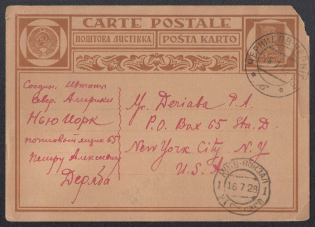 CARTE POSTALE
ПОШТОВА ЛИСТІВКА
POŜTA KARTO
Соедин. Штати
Север. Америки
Нью Йорк
почтовый ящик 65
Петру Алексеев.
Деряба
Mr. Deriaba P. A.
P. O. Box 65 Sta. D
New York City N. Y
U. S. A
16 7 29